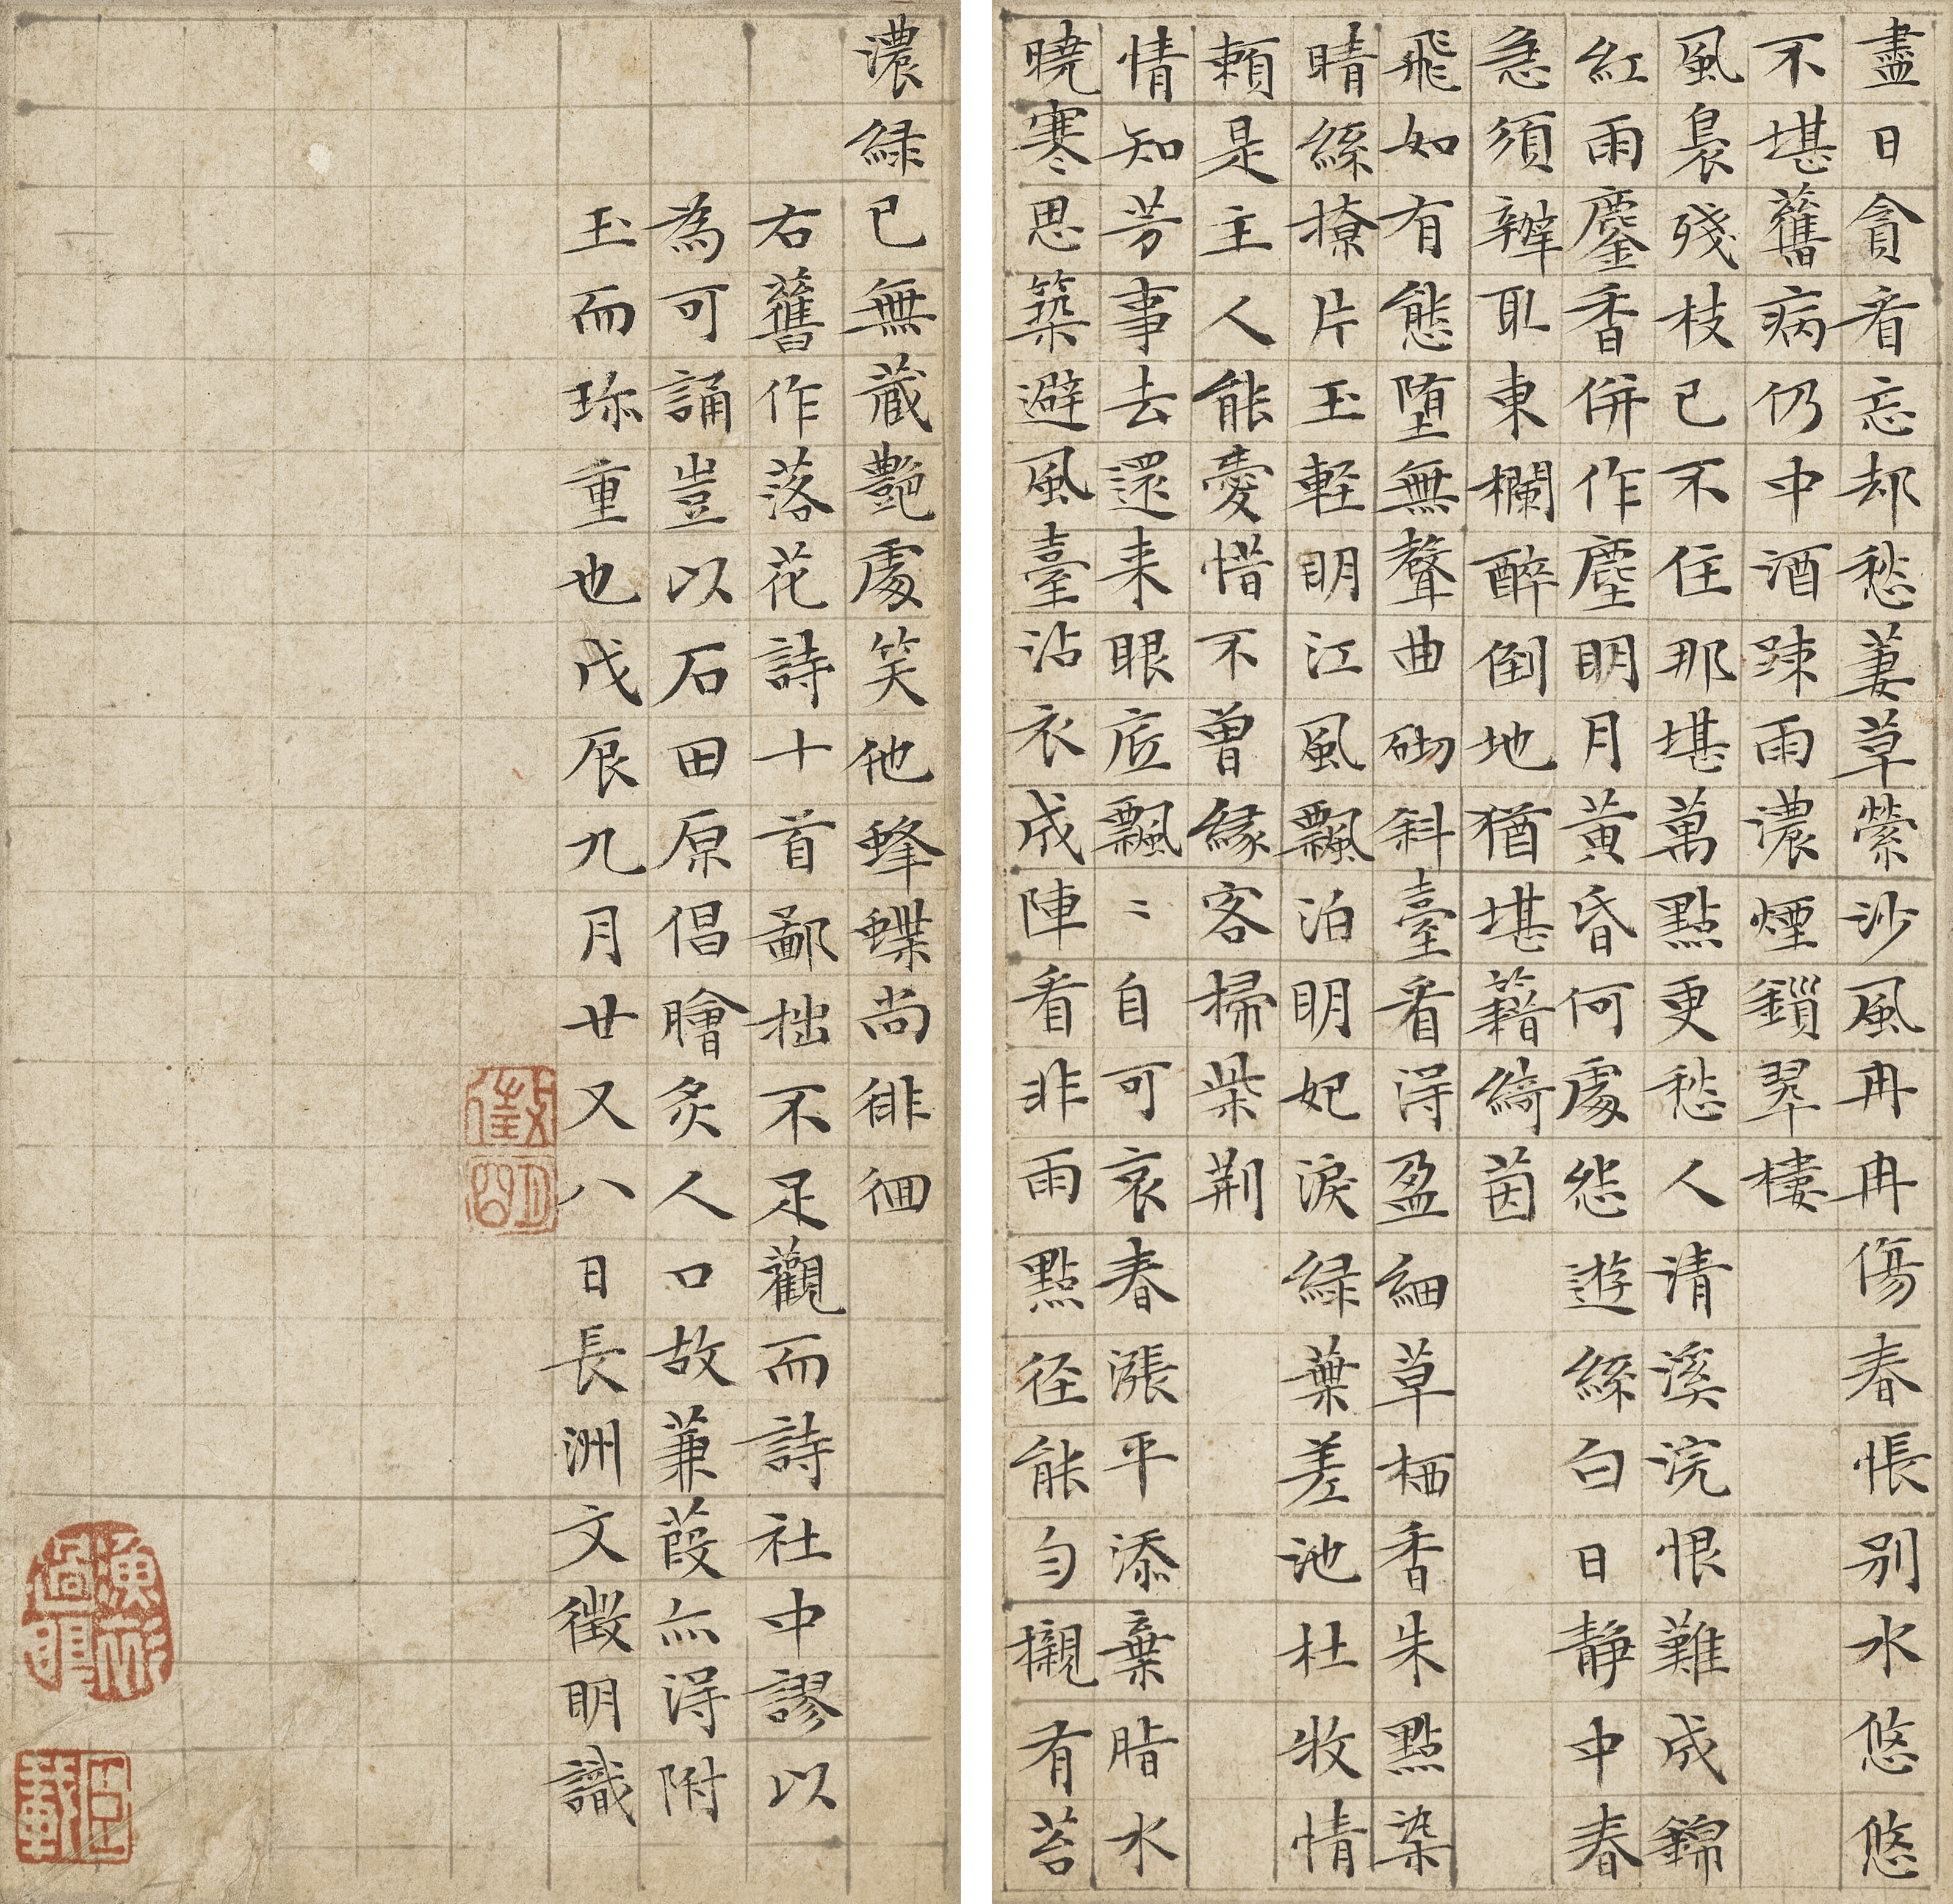 盡日貪看忘却愁萋草縈沙風冉冉傷春悵別水悠悠
不堪舊病仍中酒踈雨濃煙鎖翠棲
風裊殘枝已不住那堪萬點更愁人清溪浣恨難成錦
紅雨鏖香併作塵明月黃昏何處怨遊絲白日靜中春
急須辦取東欄醉倒地猶堪藉綺茵
飛如有態墮無聲曲砌斜臺看淂盈細草栖香朱點染
晴絲撩片玉輕明江風飄泊明妃淚綠葉差池杜牧情
賴是主人能愛惜不曾緣客掃柴荆
情知芳事去還来眼底飄〻自可哀春漲平添棄脂水
曉寒思築避風臺沾衣成陣看非雨點徑能勻襯有苔
濃綠已無藏艷處笑他蜂蝶尚徘徊
右舊作落花詩十首鄙拙不足觀而詩社中謬以
為可誦豈以石田原倡膾炙人口故蒹葭亦淂附
玉而珎重也戊辰九月廿又八日長洲文徵明識
徵明
僅